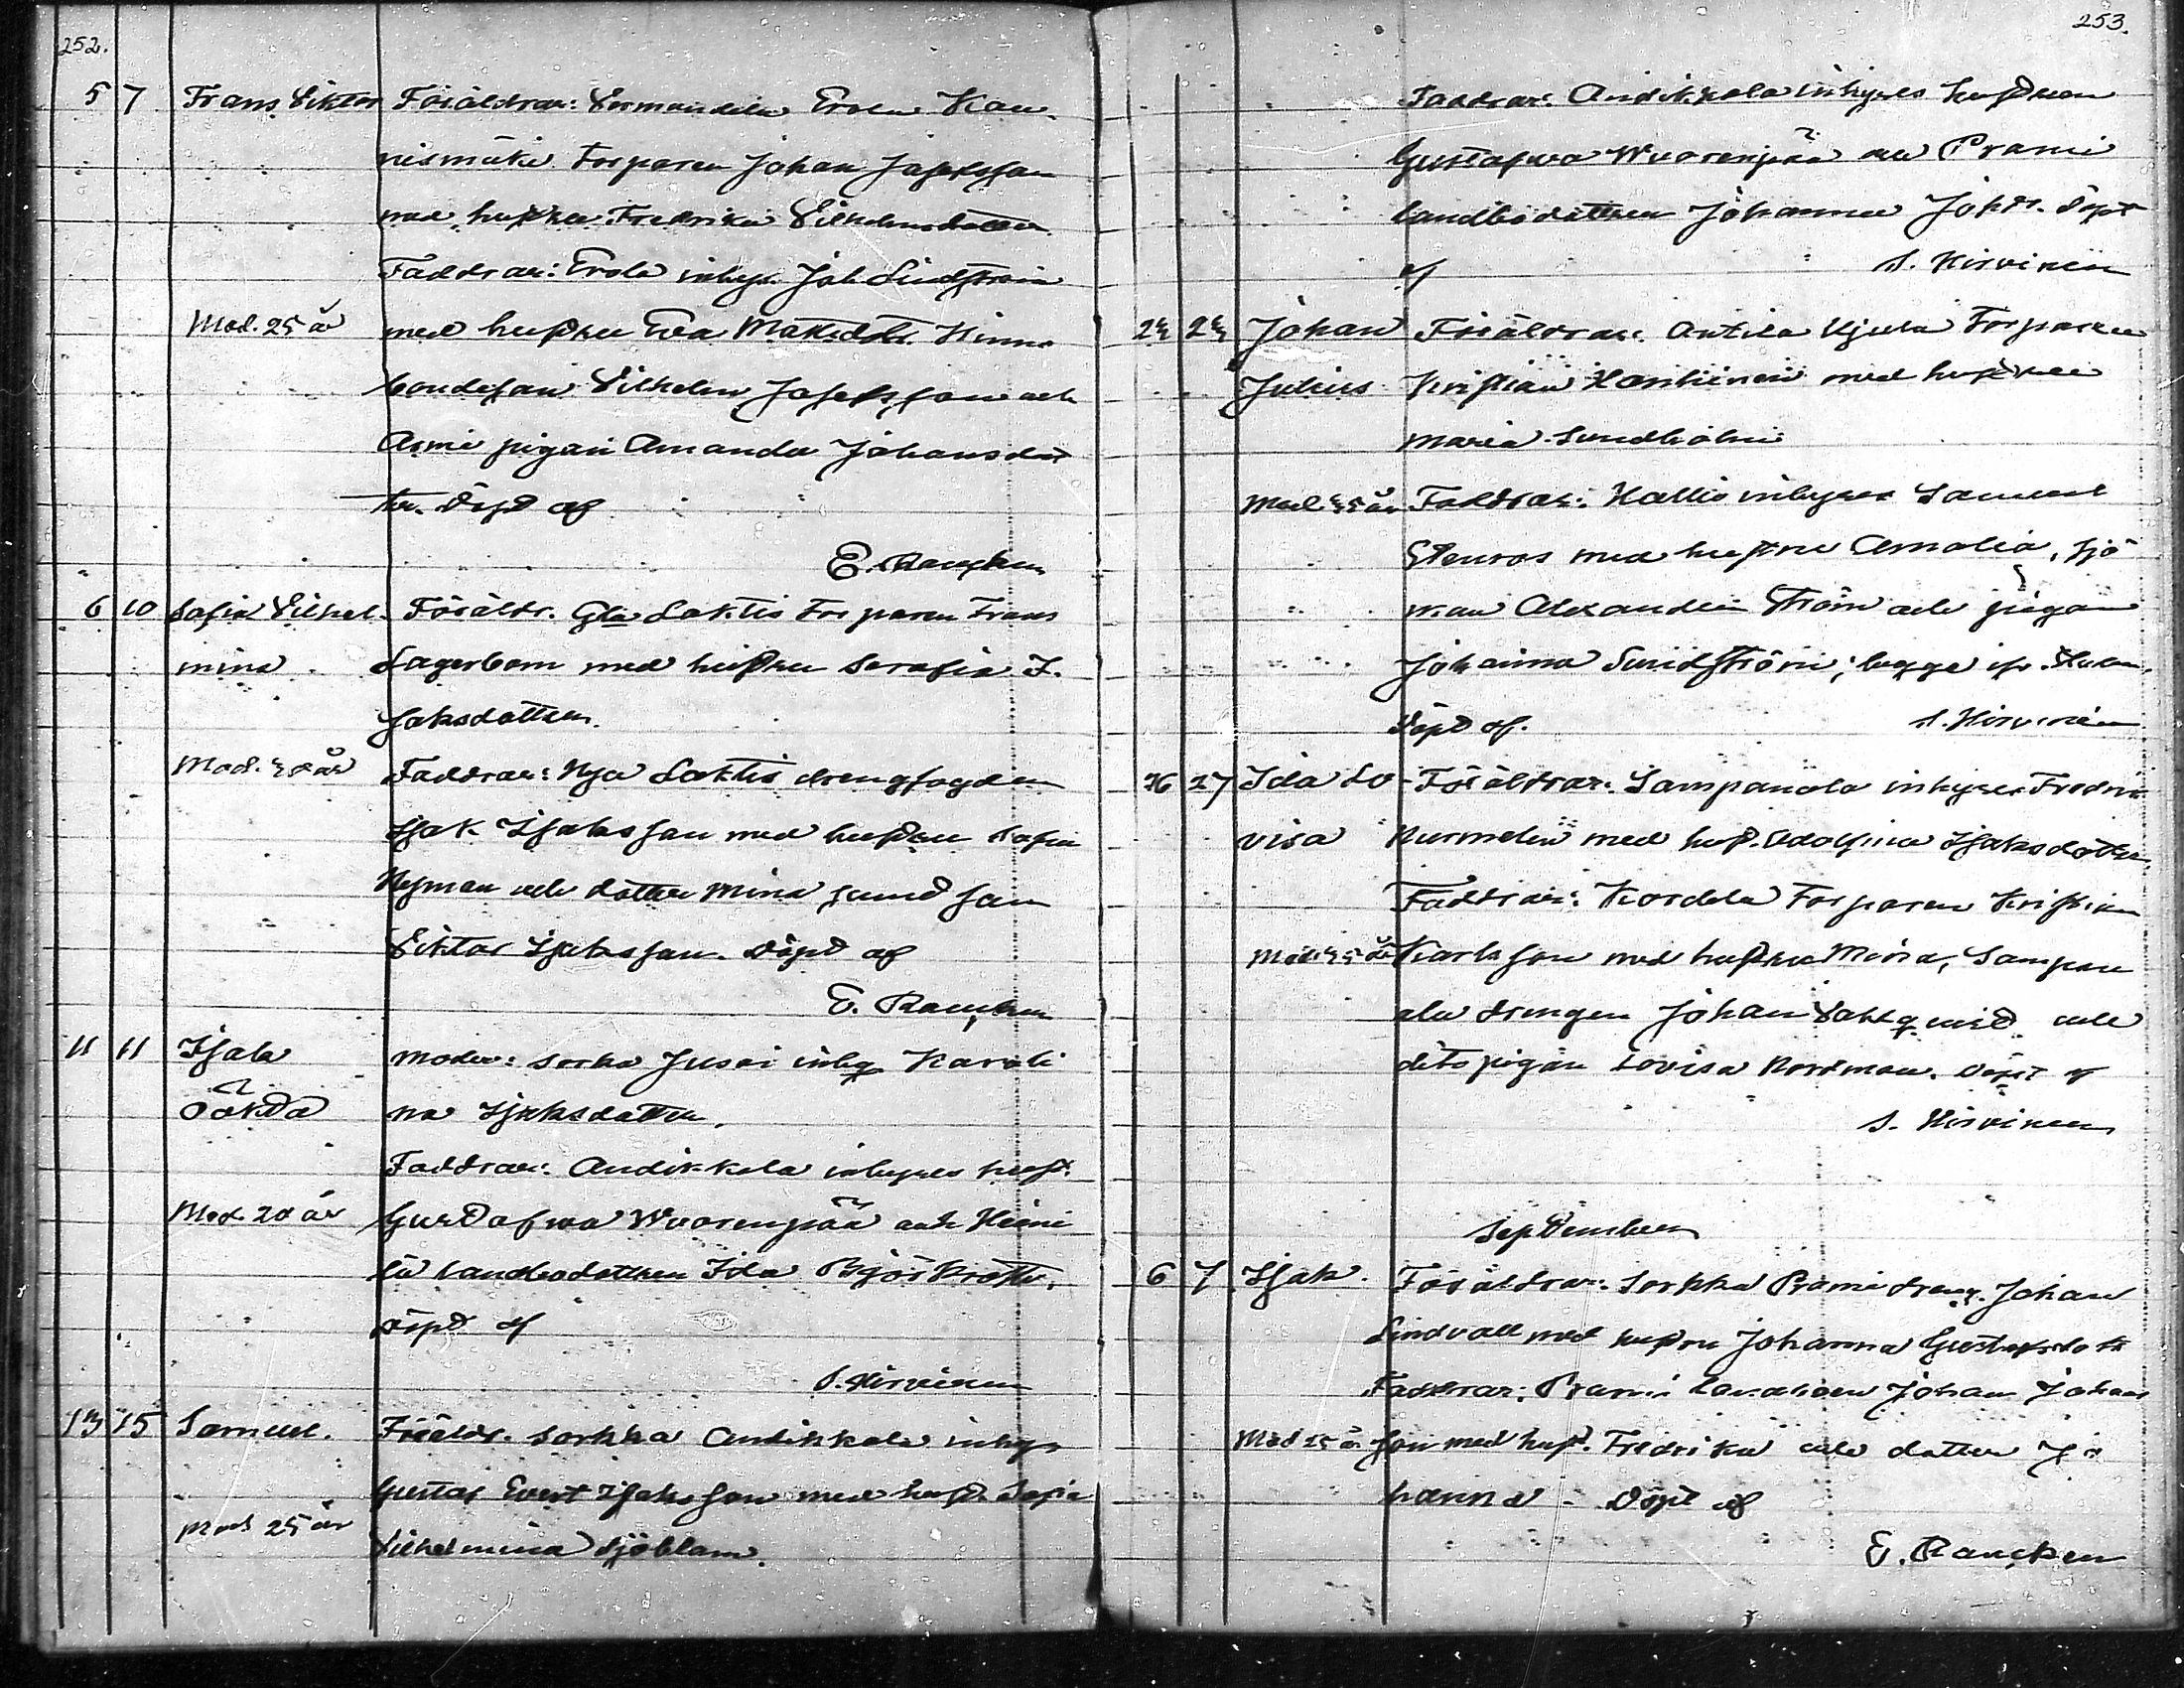 252.
5 7 Frans Viktor Föräldrar: Erola Kan-
nismäki Torparen Johan Josefsson
med hustru Fredrika Vilhelmsdotter.
Faddrar: Erola inhys. Joh Lindström
Mod. 25 år med hustru Eva Matsdotr.
bondeson Vilhelm Josefsson och
pigan Amanda Johansdot
ter. Döpt af
E. Rancken
6 10 Sofia Vilhel- Föräldr. Gla Laktis Torparen Frans
mina Lagerbom med hustru Serafia I-
saksdotter.
Mod. år Faddrar: Nya Laktis drengfogden
Isak Isaksson med hustru Sofia
Nyman och dotter Mina samt son
Viktor Isaksson. Döpt af
E. Rancken
11 11 Isak Moder: Sorka Jusoi inhys Karoli
Oäkta na Isaksdotter.
Faddrar: Andikkala inhyses hust.
Mod. 20 år Gustafwa Wuorenpää och
landbodottren Ida
Döpt af
S. Hirvinen
13 15 Samuel. Föräldr. Sorkka Andikkala inhys
Gustaf Evert Isaksson med hust. Sofia
Mod 25 år Vilhelmina Sjöblom.
253.
Faddrar: Andikkala inhyses hustrun
Gustafwa Wuorenpää och Prami
landbodottren Johanna Johdr. Döpt
af S. Hirvinen
24 24 Johan Föräldrar: Antila Torparen
Julius Kristian med hustru
Maria Sundholm
Mod. 35 år Faddrar: Kallio inhyses Samuel
Stenros med hustru Amalia, sjö
man Alexander Ström och pigan
Johanna Sundström, begge
Döpt af. S. Hirvinen
26 27 Ida Lo- Föräldrar: Sampanala inhyses Fredrik
visa Nurmelin med hust. Adolfina Isaksdotter.
Faddrar: Kordela Torparen Kristian
Karlsson med hustru Maria, Sampan
ala drengen Johan och
dito pigan Lovisa Nordman. Döpt af
S. Hirvinen
September
6 7 Isak. Föräldrar: Sorkka Prami dreng. Johan
Lindvall med hustru Johanna Gustafsdotr
Faddrar: Prami landboen Johan Johans
Mod 25 år son med hust. Fredrika och dotter Jo
hanna - Döpt af
E. Rancken